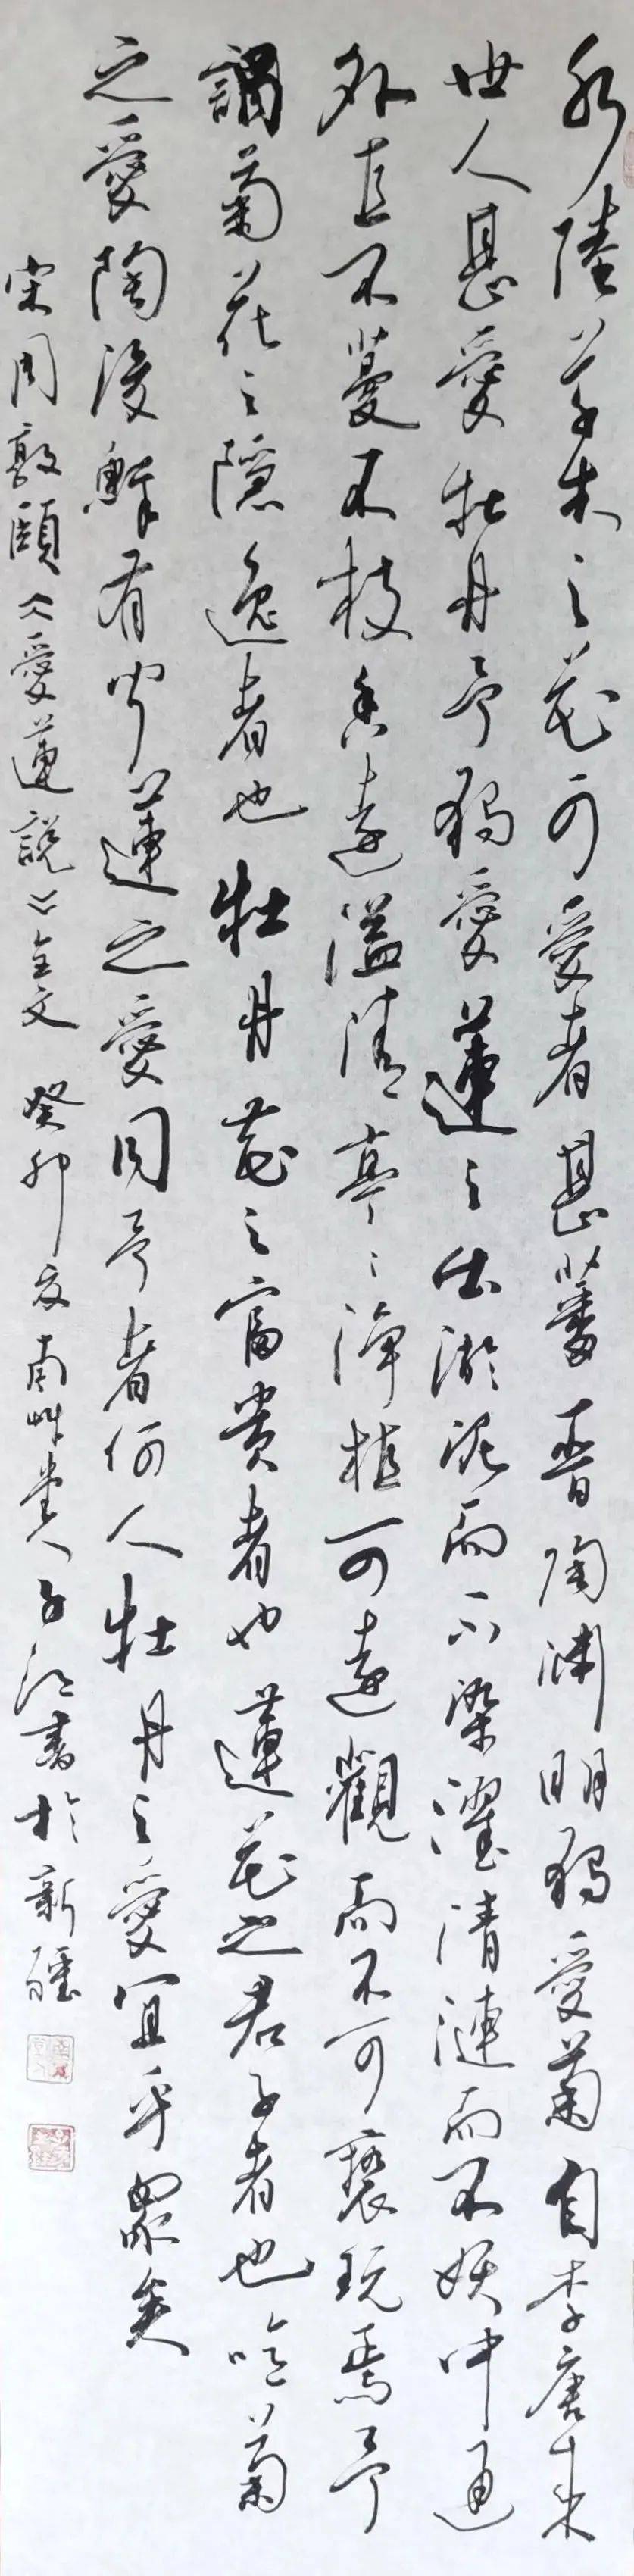 水陸草木之花可愛者甚蕃晋陶渊明獨愛菊自李唐来
世人甚愛牡丹予獨愛蓮之出淤泥而不染濯清漣而不妖中通
外直不蔓不枝香遠溢清亭亭淨植可遠觀而不可褻玩焉予
謂菊花之隱逸者也牡丹花之富貴者也蓮花之君子者也噫菊
之愛陶後鮮有聞蓮之愛同予者何人牡丹之愛宜乎眾矣
宋周敦頤《愛蓮說》全文 癸卯夏南 子江書於新疆